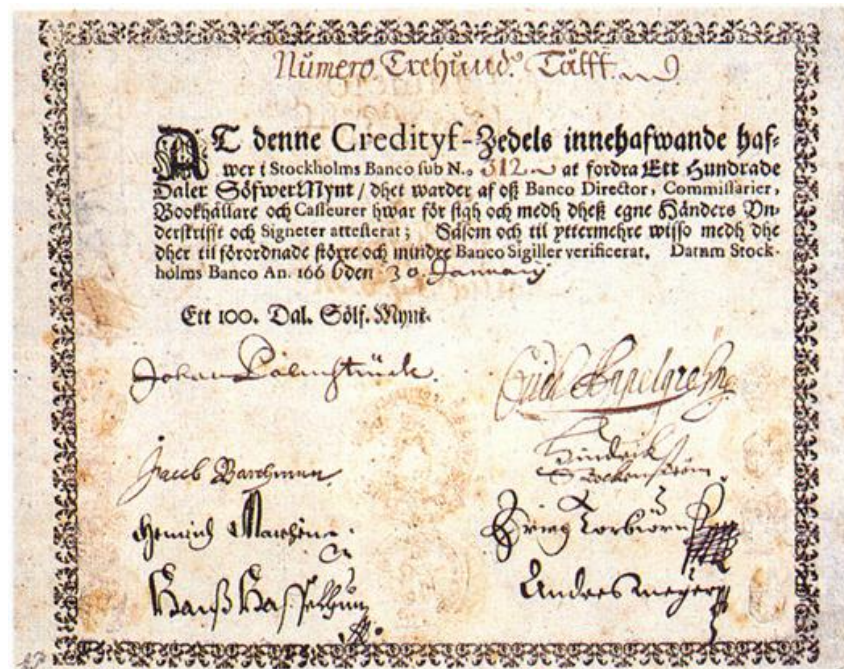 Numero Trehund. Tålff.
AT denne Credityf-Zedels innehafwande haf-
wer i Stockholms Banco sub N.o 312 at fordra Ett Hundrade
Daler SöfwerMynt / dhet warder af oß Banco Director, Commissarier,
Bookhållare och Casseurer hwar för sigh och medh dheß egne Händers Vn-
derskrifft och Signeter attesterat; Såsom och til yttermehre wisso medh dhe
dher til förordnade större och mindre Banco Sigiller verificerat. Datum Stock-
holms Banco An. 1666 den 30 January
Ett 100. Dal. Sölf. Mynt.
Johan Palmstruck.
Jacob Barchman
Hindrik
Heinrich
Hanß
Andres Meyer